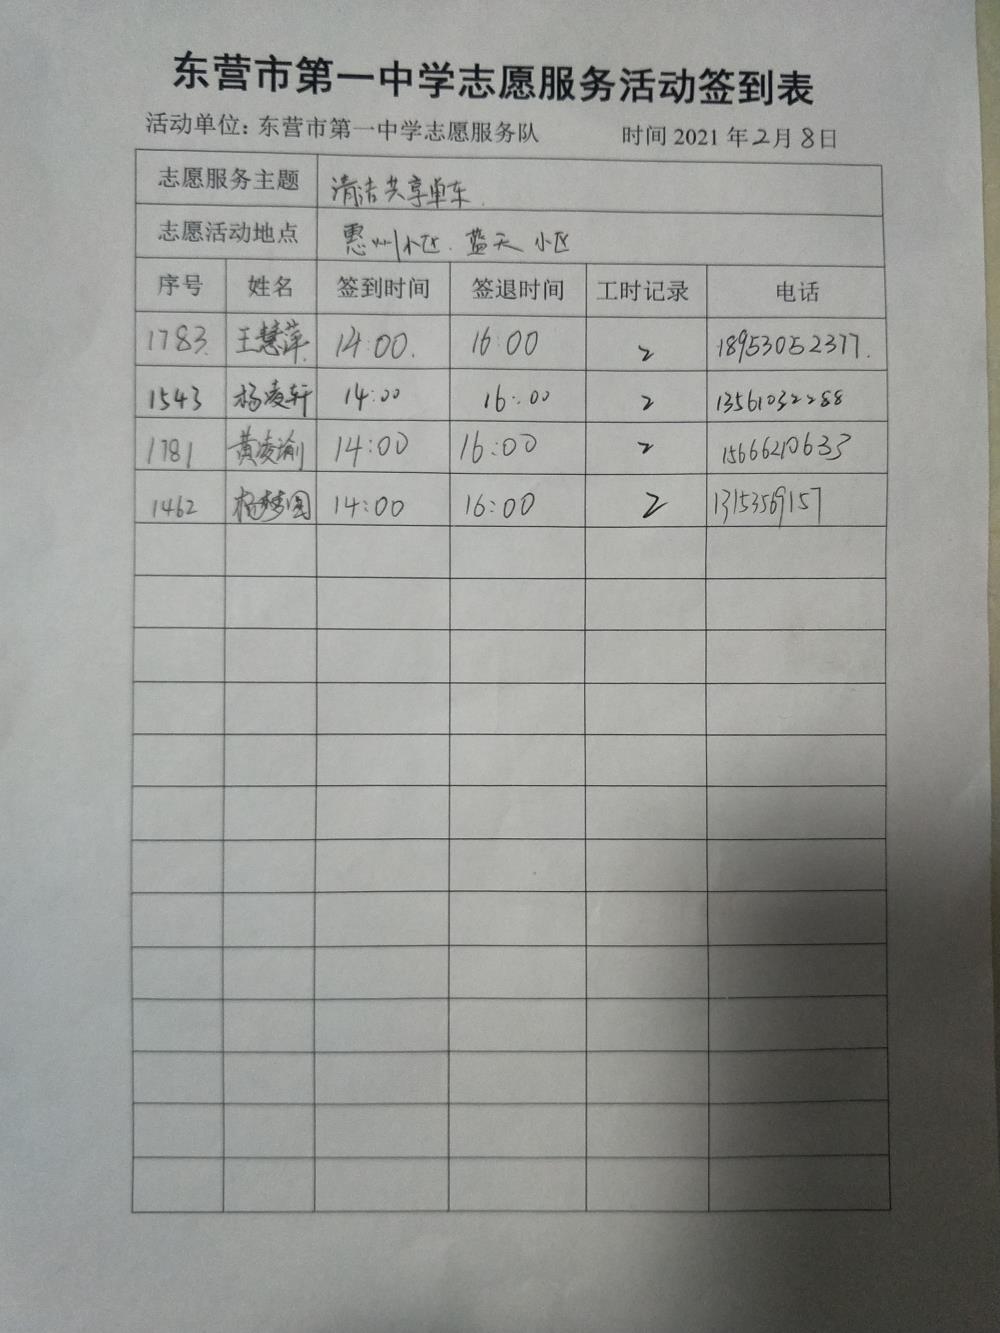 东营市第一中学志愿服务活动签到表
活动单位：东营市第一中学志愿服务队 时间 2021 年2月8日
志愿服务主题 清洁共享单车.
志愿活动地点 惠州小区. 蓝天小区
序号 姓名 签到时间 签退时间 工时记录 电话
1783. 王慧萍. 14:00. 16:00 2 18953052377.
1543 杨凌轩 14:00 16:00 2 13561032288
1781 黄凌瑜 14:00 16:00 2 15666210633
1462 杨梦圆 14:00 16:00 2 13153569157